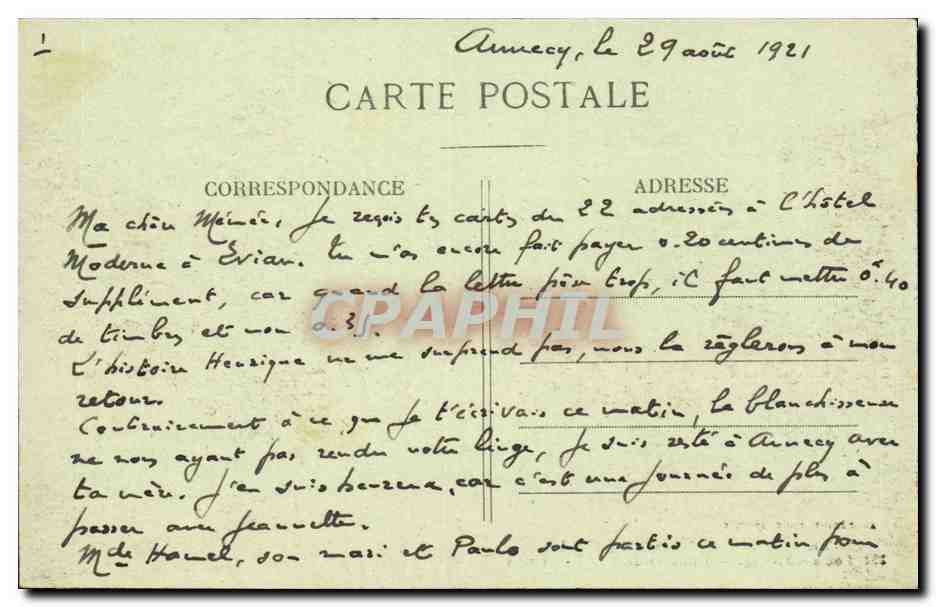 1
Annecy, le 29 août 1921
CARTE POSTALE
CORRESPONDANCE
ADRESSE
Ma chère Mémée, Je reçois tes cartes du 22 adressées à l'hôtel
Moderne à Évian. Tu m'as encore fait payer 0.20 centimes de
supplément, car quand la lettre pèse trop, il faut mettre 0f.40
de timbres et non 0.35.
L'histoire Henrique ne me surprend pas, nous la règlerons à mon
retour.
Contrairement à ce que je t'écrivais ce matin, la blanchisseuse
ne nous ayant pas rendu notre linge, je suis resté à Annecy avec
ta mère. J'en suis heureux, car c'est une journée de plus à
passer avec Jeannette.
Mde Hamel, son mari et Paulo sont partis ce matin pour
CPAPHIL